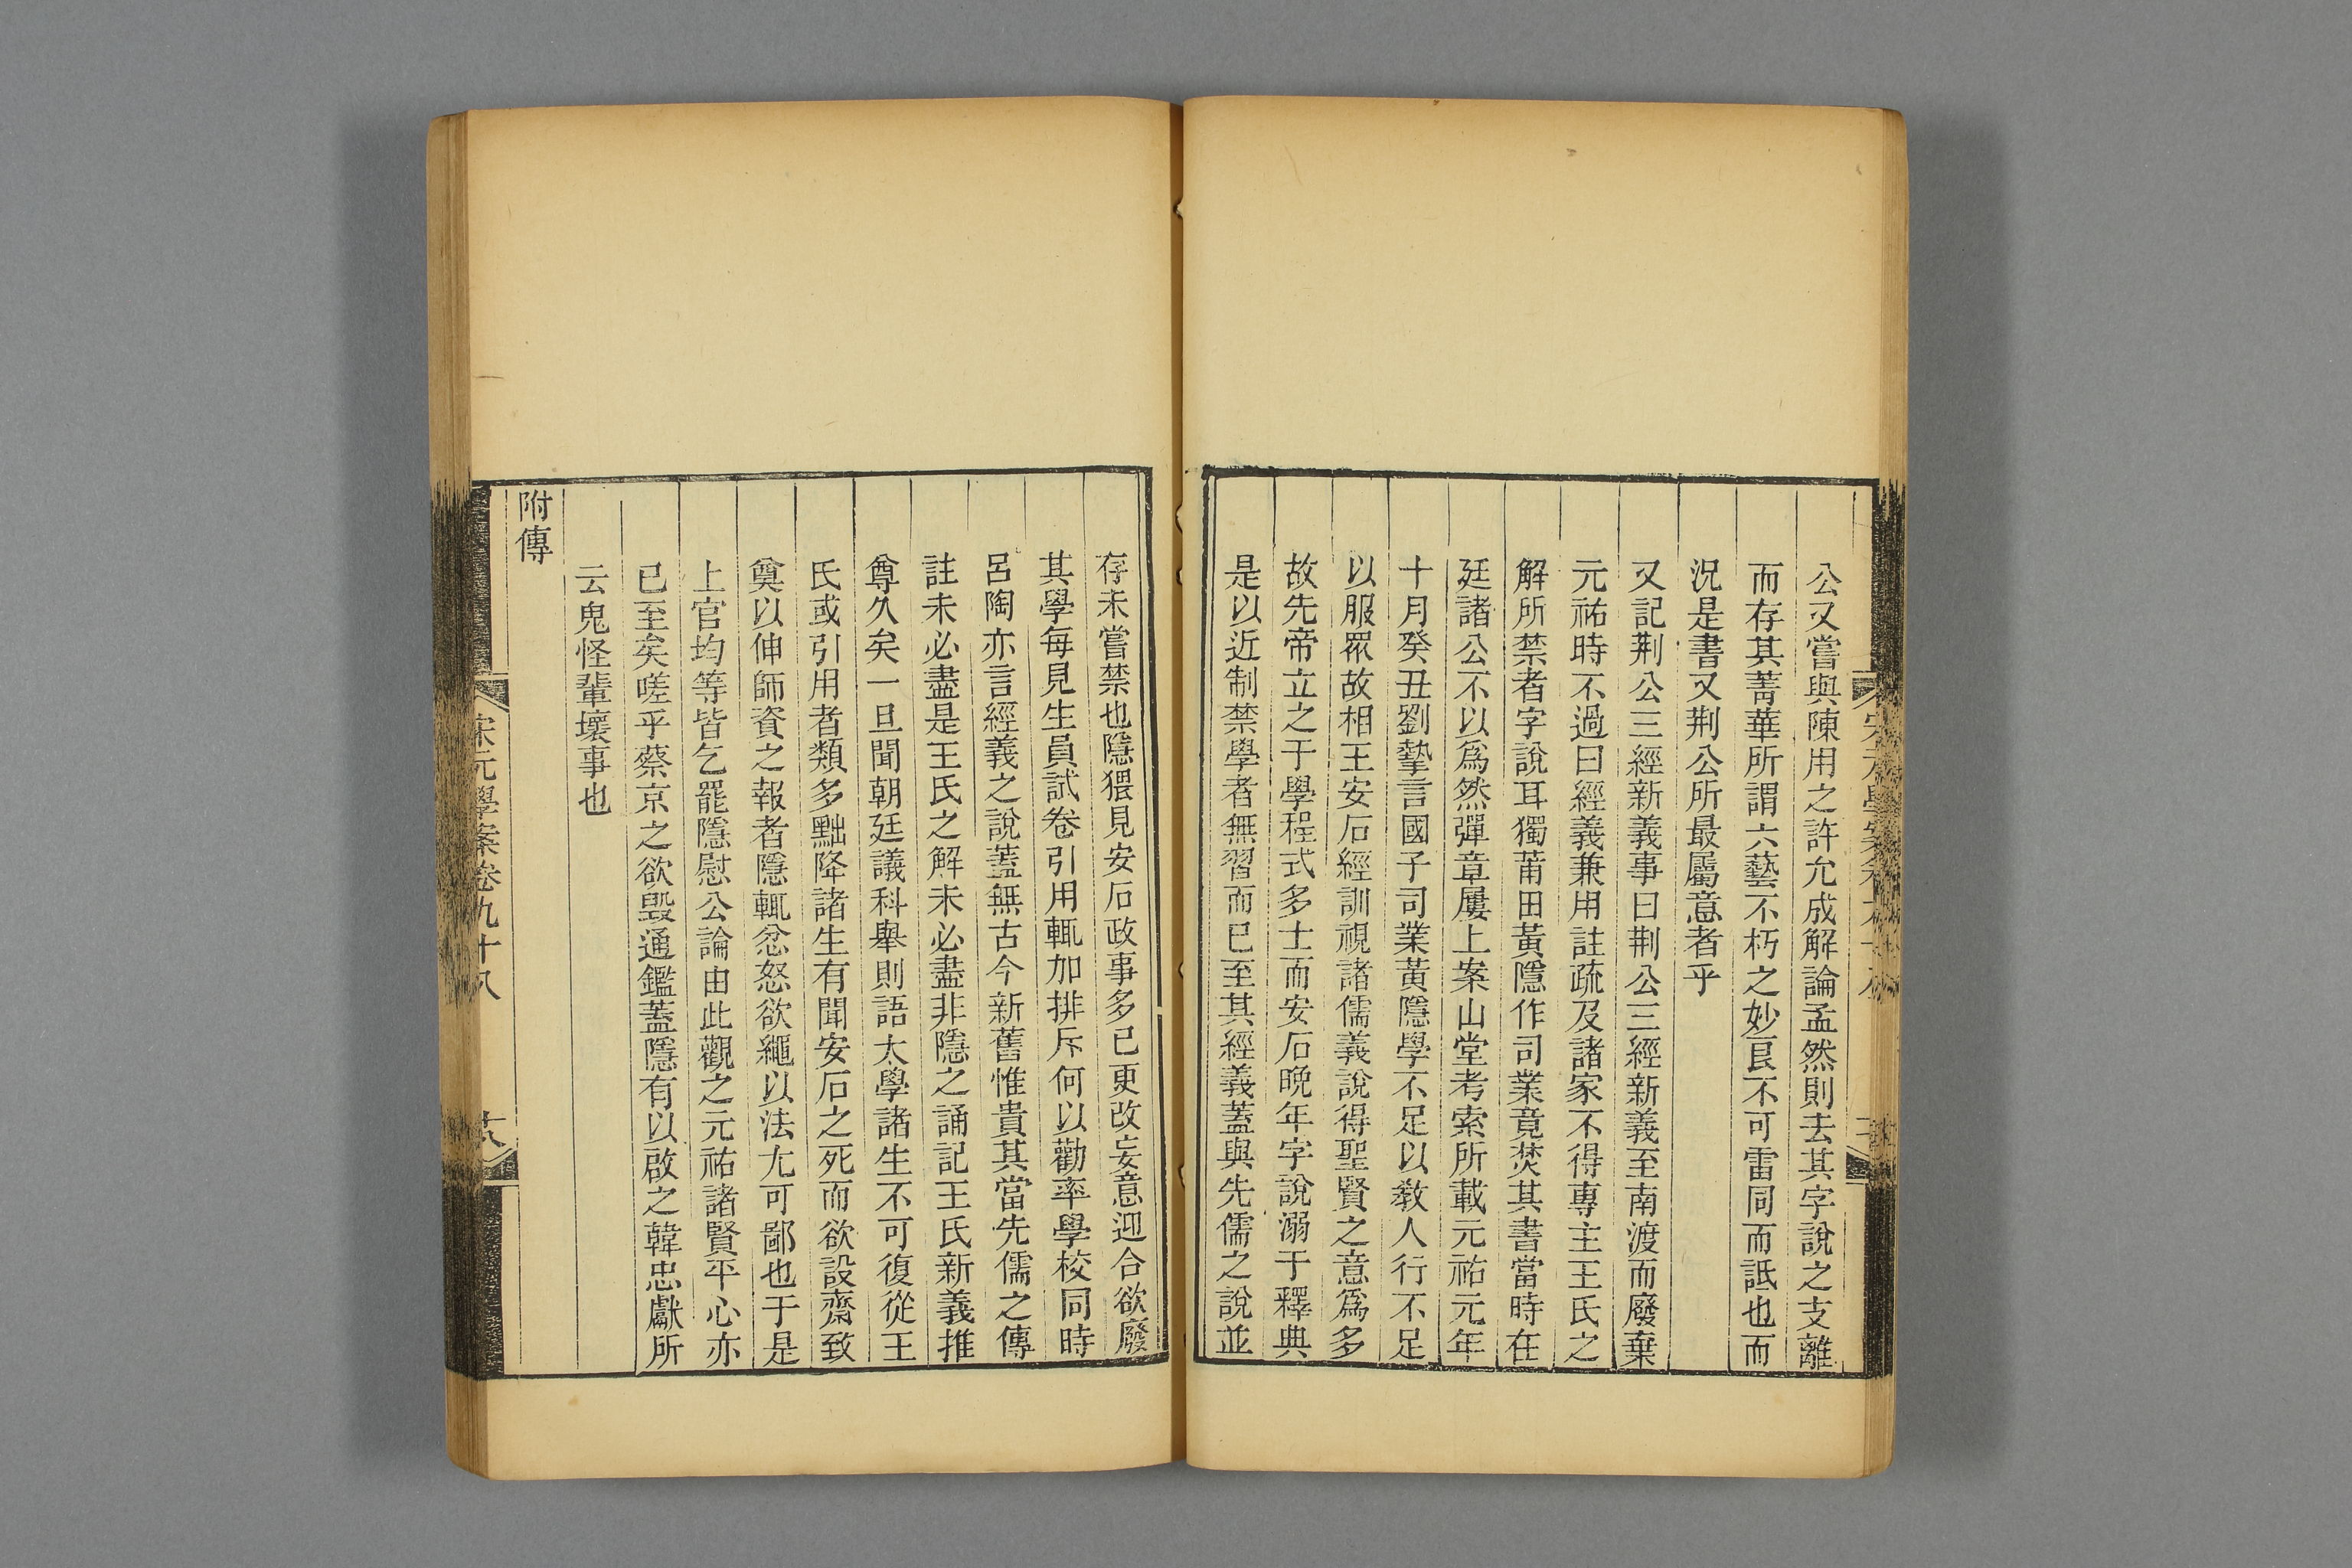 公又嘗與陳用之許允成解論孟然則去其字說之支離
而存其菁華所謂六藝不朽之妙艮不可雷同而詆也而
況是書又荆公所最屬意者乎
又記荆公三經新義事曰荆公三經新義至南渡而廢棄
元祐時不過曰經義兼用註疏及諸家不得專主王氏之
解所禁者字說耳獨莆田黃隱作司業竟焚其書當時在
廷諸公不以爲然彈章屢上案山堂考索所載元祐元年
十月癸丑劉摯言國子司業黃隱學不足以教人行不足
以服眾故相王安石經訓視諸儒義說得聖賢之意爲多
故先帝立之于學程式多士而安石晩年字說溺于釋典
是以近制禁學者無習而已至其經義蓋與先儒之說並
存未嘗禁也隱猥見安石政事多已更改妄意迎合欲廢
其學每見生員試卷引用輒加排斥何以勸率學校同時
呂陶亦言經義之說蓋無古今新舊惟貴其當先儒之傳
註未必盡是王氏之解未必盡非隱之誦記王氏新義推
尊久矣一旦聞朝廷議科舉則語太學諸生不可復從王
氏或引用者類多黜降諸生有聞安石之死而欲設齋致
奠以伸師資之報者隱輒忿怒欲繩以法尢可鄙也于是
上官均等皆乞罷隱慰公論由此觀之元祐諸賢平心亦
已至矣嗟乎蔡京之欲毀通鑑蓋隱有以啟之韓忠獻所
云鬼怪輩壞事也
附傳
宋元學案卷九十八